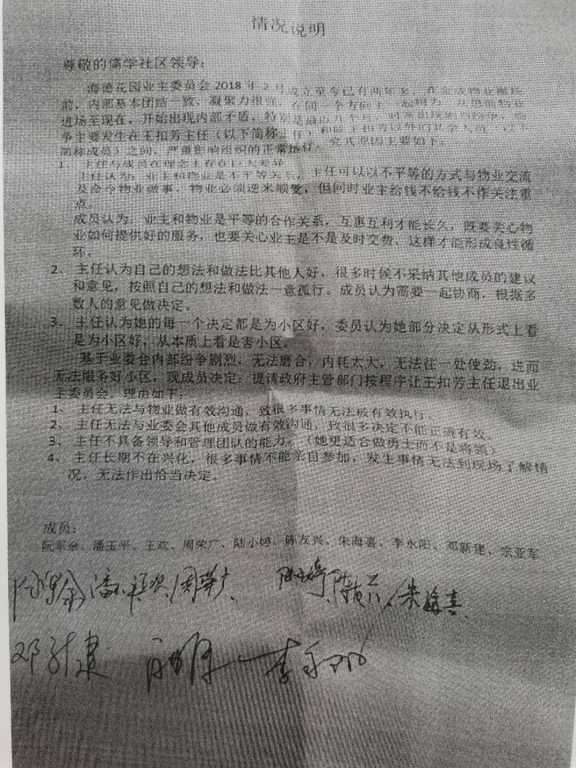 情况说明
尊敬的儒学社区领导：
海德花园业主委员会 2018 年 2 月成立至今已有两年多，在金成物业撤场
前，内部基本团结一致，凝聚力很强，在同一个方向上一起用力，
进场至现在，开始出现内部矛盾，特别是最近几个月，
争主要发生在王扣芳主任（以下简称主任）和除王扣芳以外的其余人员（以下
简称成员）之间，严重影响组织的正常运行。究其原因主要如下：
1、 主任与成员在理念上存在巨大差异
主任认为：业主和物业是不平等关系，主任可以以不平等的方式与物业交流
及命令物业做事，物业必须逆来顺受，但同时业主给钱不给钱不作关注重
点。
成员认为：业主和物业是平等的合作关系，互惠互利才能长久，既要关心物
业如何提供好的服务，也要关心业主是不是及时交费，这样才能形成良性循
环。
2、 主任认为自己的想法和做法比其他人好，很多时候不采纳其他成员的建议
和意见，按照自己的想法和做法一意孤行。成员认为需要一起协商，根据多
数人的意见做决定。
3、 主任认为她的每一个决定都是为小区好，委员认为她部分决定从形式上看
是为小区好，从本质上看是害小区。
基于业委会内部纷争剧烈，无法磨合，内耗太大，无法往一处使劲，进而
无法服务好小区，现成员决定：提请政府主管部门按程序让王扣芳主任退出业
主委员会，理由如下：
1、 主任无法与物业做有效沟通，致很多事情无法被有效执行。
2、 主任无法与业委会其他成员做有效沟通，致很多决定不能正确有效。
3、 主任不具备领导和管理团队的能力。（她更适合做勇士而不是将领）
4、 主任长期不在兴化，很多事情不能亲自参加，发生事情无法到现场了解情
况，无法作出恰当决定。
成员：
阮军余、潘玉平、王欢、周荣广、陆小婷、陈友兴、朱海喜、李永阳、邓新建、宗亚军
周荣广 朱海喜
邓新建 李永阳